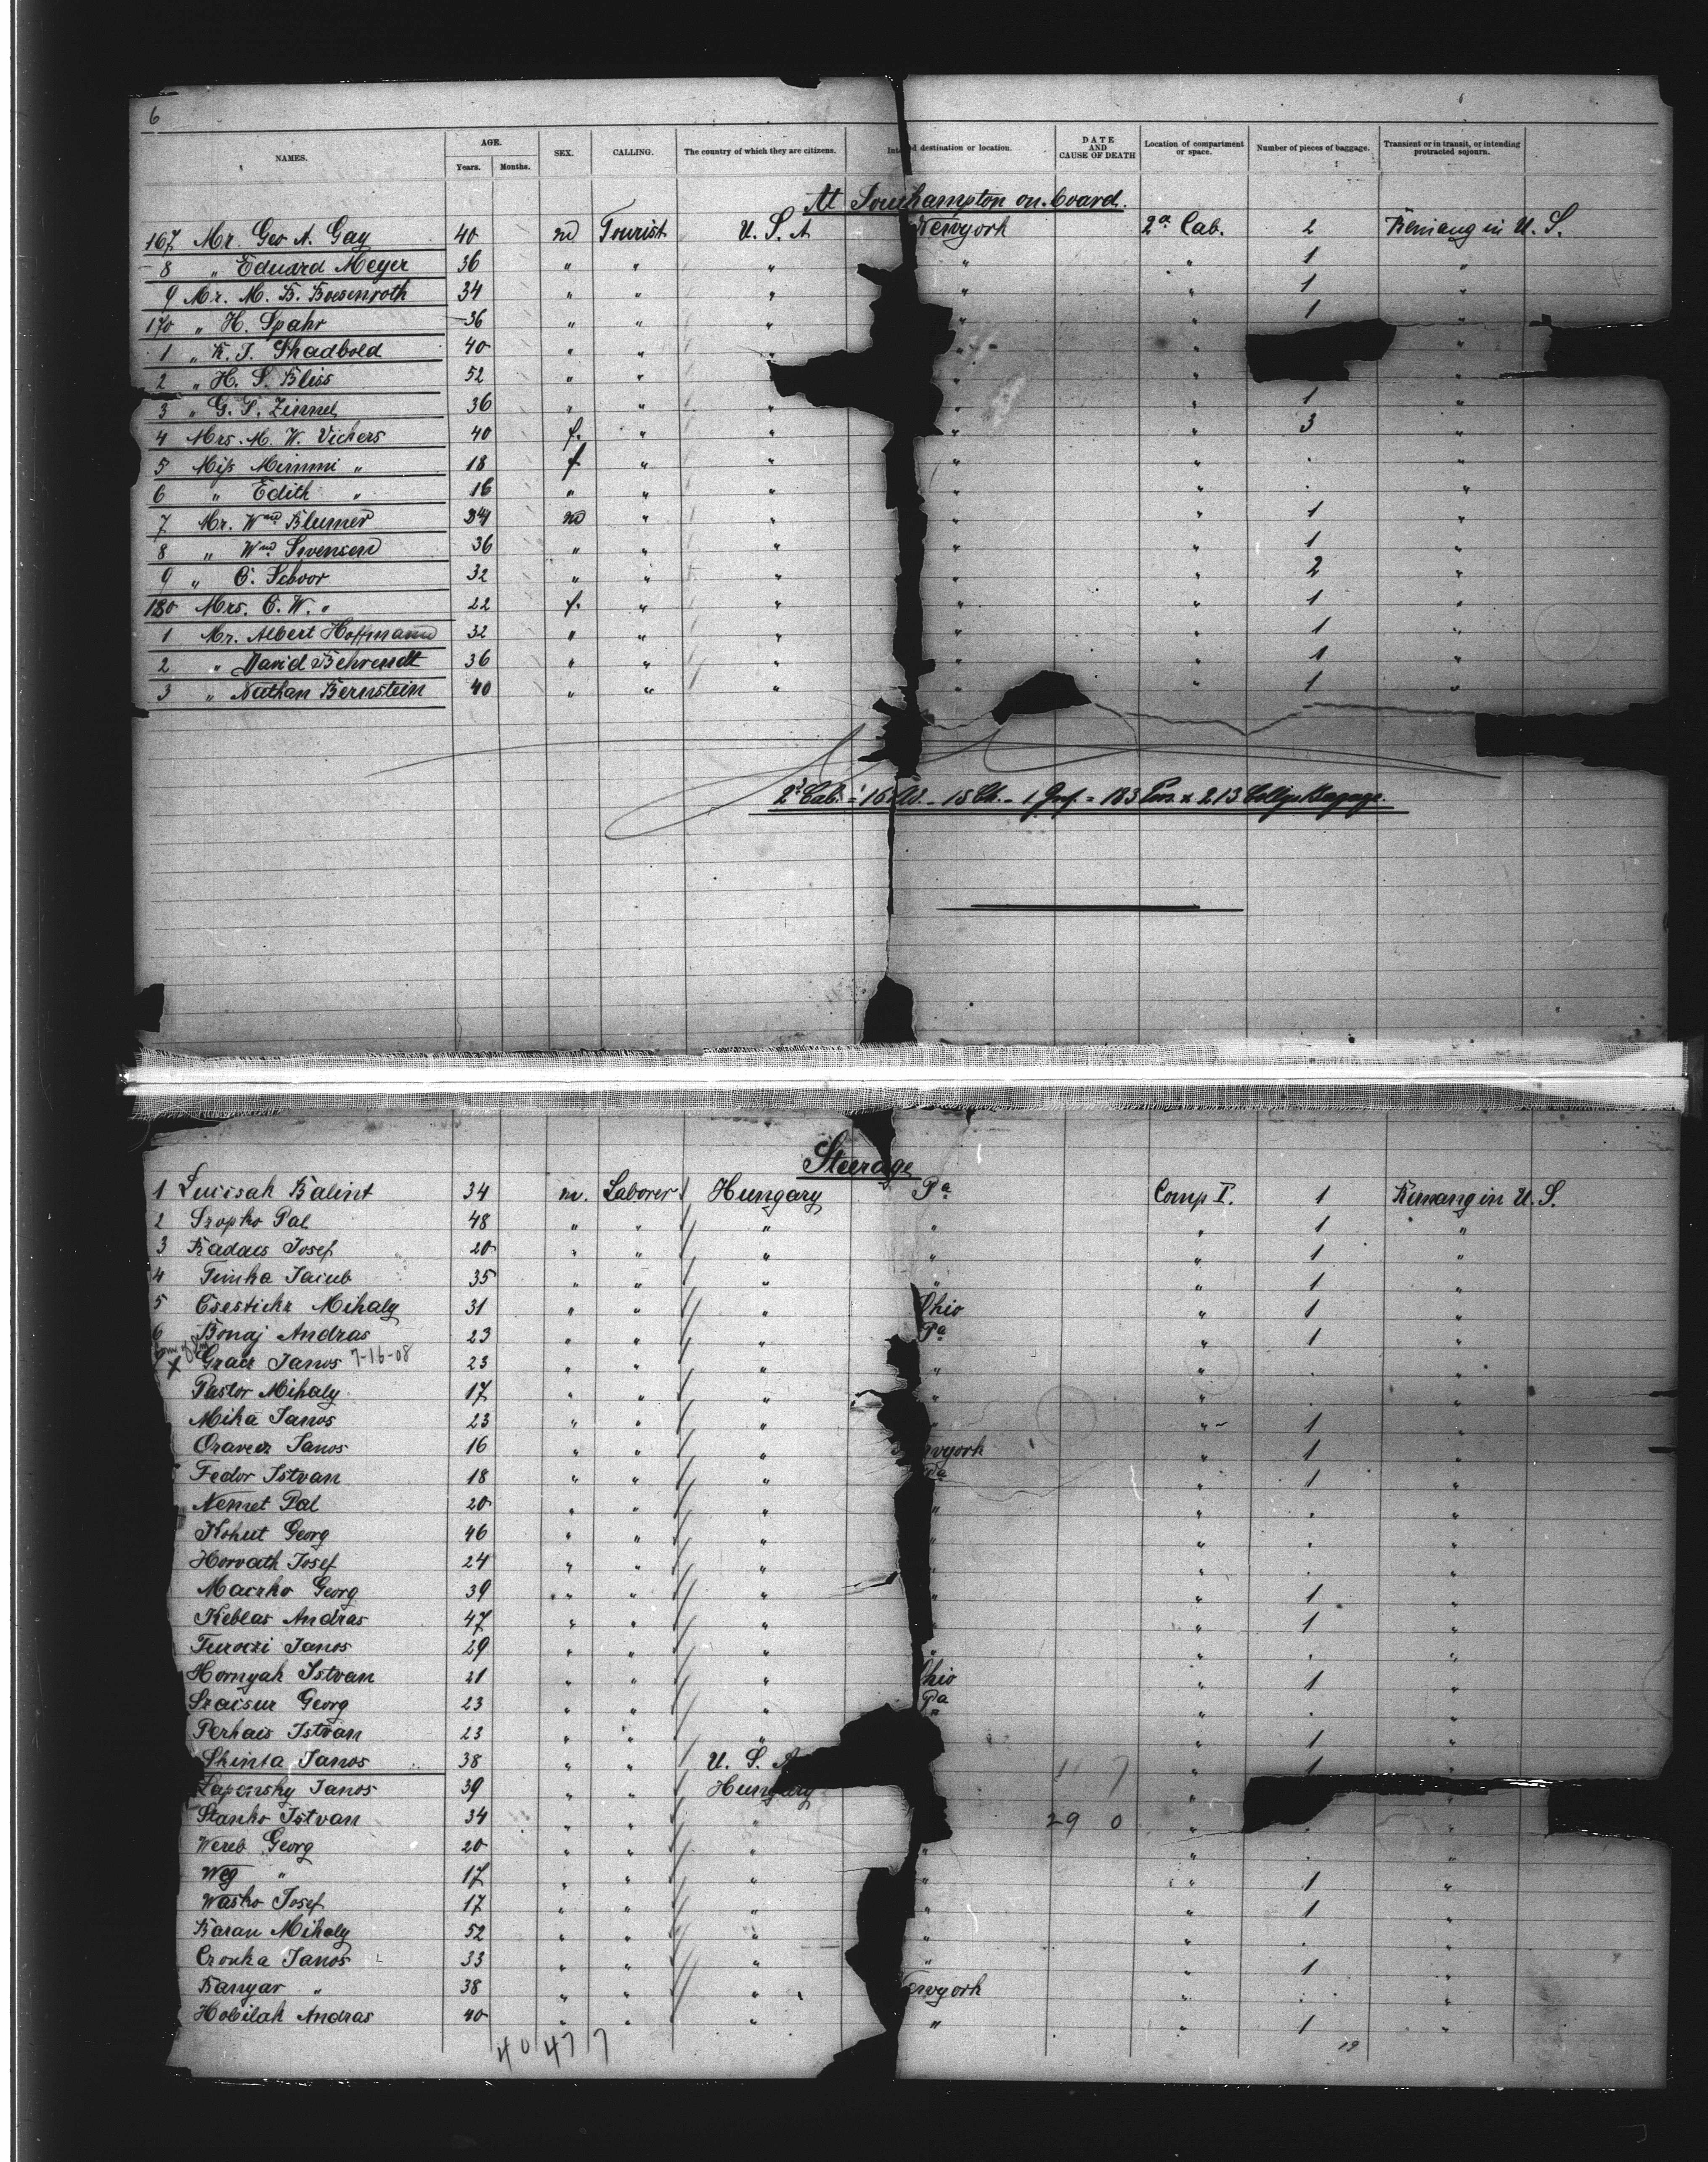 6
NAMES. AGE. Years. Months. SEX. CALLING. The country of which they are citizens. destination or location. DATE AND CAUSE OF DEATH Location of compartment or space. Number of pieces of baggage. Transient or in transit, or intending protracted sojourn.
At Southampton on board.
167 Mr. Geo A. Gay 40 m Tourist U. S. A Newyork 2ª Cab. 2 Remang in U. S.
8 " Eduard Meyer 36 " " " " " 1 "
9 Mr. M. B. Boesenroth 34 " " " " " 1 "
170 " H. Spahr 36 " " " " " 1 "
1 " R. J. Shadbold 40 " " " " " "
2 " H. S. Bliss 52 " " " " "
3 " G. S. Zinnel 36 " " " " " 1 "
4 Mrs. M. W. Vickers 40 f. " " " " 3 "
5 Miss Mimmi " 18 f " " " " . "
6 " Edith " 16 " " " " " . "
7 Mr. Wm Blumer 34 m " " " " 1 "
8 " Wm Swenson 36 " " " " 1 "
9 " C. Schoor 32 " " " " " 2 "
180 Mrs. C. W. " 22 f. " " " " 1 "
1 Mr. Albert Hoffmann 32 " " " " " 1 "
2 " David Behrendt 36 " " " " " 1 "
3 " Nathan Bernstein 40 " " " " " 1 "
2ª Cab. = 16 - 15 Ch. - 1 Inf. = 183 Pers. & 213 Collys Bagage.
Steerage
1 Balint 34 m. Laborer Hungary Pa Comp I. 1 Remang in U. S.
2 Szopko Pal 48 " " " " " 1 "
3 Badais Josef 20 " " " " " 1 "
4 Timka Jacub 35 " " " " " 1 "
5 Csestickz Mihaly 31 " " " Ohio " 1 "
6 Bonaj Andras 23 " " " Pa " 1 "
X Gracz Janos 7-16-08 23 " " " " " . "
Pastor Mihaly 17 " " " " " . "
Mika Janos 23 " " " " " 1 "
Oravecz Janos 16 " " " wyork " 1 "
Fedor Istvan 18 " " " Pa " 1 "
Nemet Pal 20 " " " " " . "
Kohut Georg 46 " " " " " . "
Horvath Josef 24 " " " " . "
Maczko Georg 39 " " " " " 1 "
Keblas Andras 47 " " " " " 1 "
Turoczi Janos 29 " " " " " . "
Hornyak Istvan 21 " " " Ohio " 1 "
Szacsur Georg 23 " " " Pa " . "
Perhais Istvan 23 " " " " 1 "
Skinta Janos 38 " " U. S. A " 1 "
Lapinsky Janos 39 " " Hungary " "
Stanko Istvan 34 " " " 29 0 " . "
Wereb Georg 20 " " " " " . "
Weg " 17 " " " " " 1 "
Wasko Josef 17 " " " " " 1 "
Baran Mihaly 52 " " " " " . "
Czonka Janos 33 " " " " " 1 "
Banyar " 38 " " " ewyork " . "
Hobilak Andras 40 " " " " " 1 "
40 47 7
19